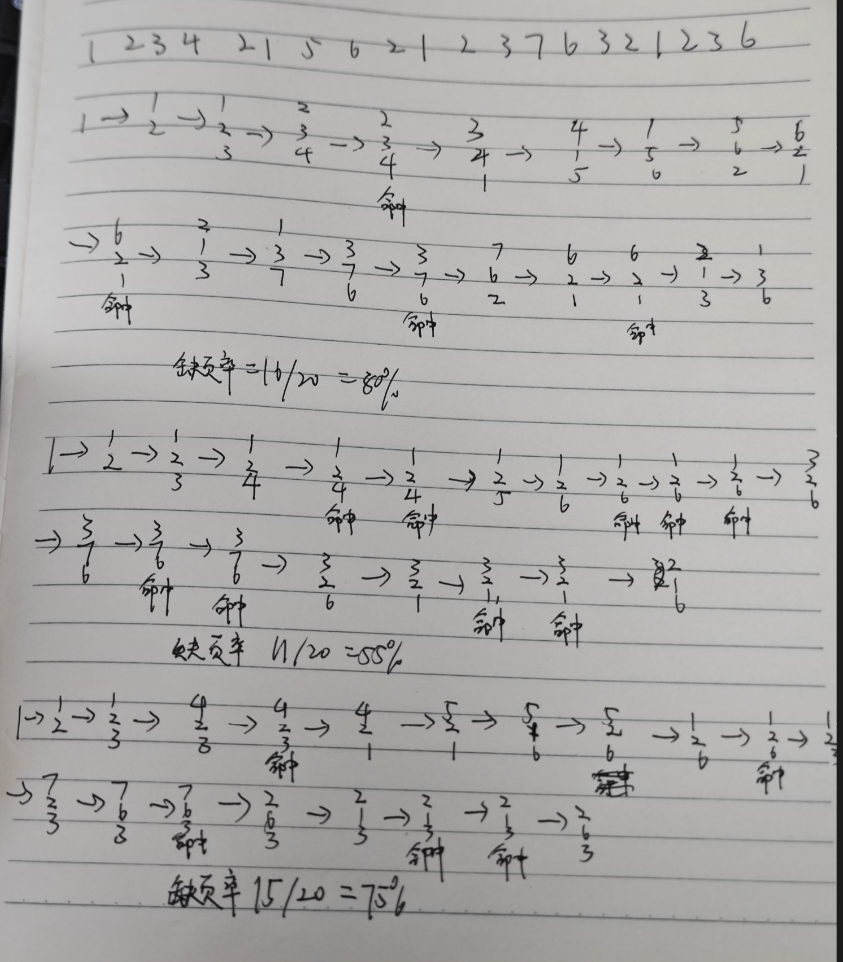 1 2 3 4 2 1 5 6 2 1 2 3 7 6 3 2 1 2 3 6
1 1 2 2 3 4 1 5 6
1 → 2 → 2 → 3 → 3 → 4 → 1 → 5 → 6 → 2
3 4 4 1 5 6 2 1
命中
6 2 1 3 3 7 6 6 2 1
→ 2 → 1 → 3 → 7 → 7 → 6 → 2 → 2 → 1 → 3
1 3 7 6 6 2 1 1 3 6
命中 命中 命中
缺页率=16/20 =80%
1 1 1 1 1 1 1 1 1 1 3
1 → 2 → 2 → 2 → 2 → 2 → 2 → 2 → 2 → 2 → 2 → 2
3 4 4 4 5 6 6 6 6 6
命中 命中 命中 命中 命中
3 3 3 3 3 3 3 2
→ 7 → 7 → 7 → 2 → 2 → 2 → 2 → 1
6 6 6 6 1 1 1 6
命中 命中 命中 命中
缺页率 11/20 =55%
1 1 4 4 4 5 5 5 1 1 1
1 → 2 → 2 → 2 → 2 → 2 → 2 → → 2 → 2 → 2 → 2
3 3 3 1 1 6 6 6 6
命中 命中
7 7 7 2 2 2 2 2
→ 2 → 6 → 6 → 6 → 1 → 1 → 1 → 6
3 3 3 3 3 3 3 3
命中 命中 命中
缺页率 15/20 =75%